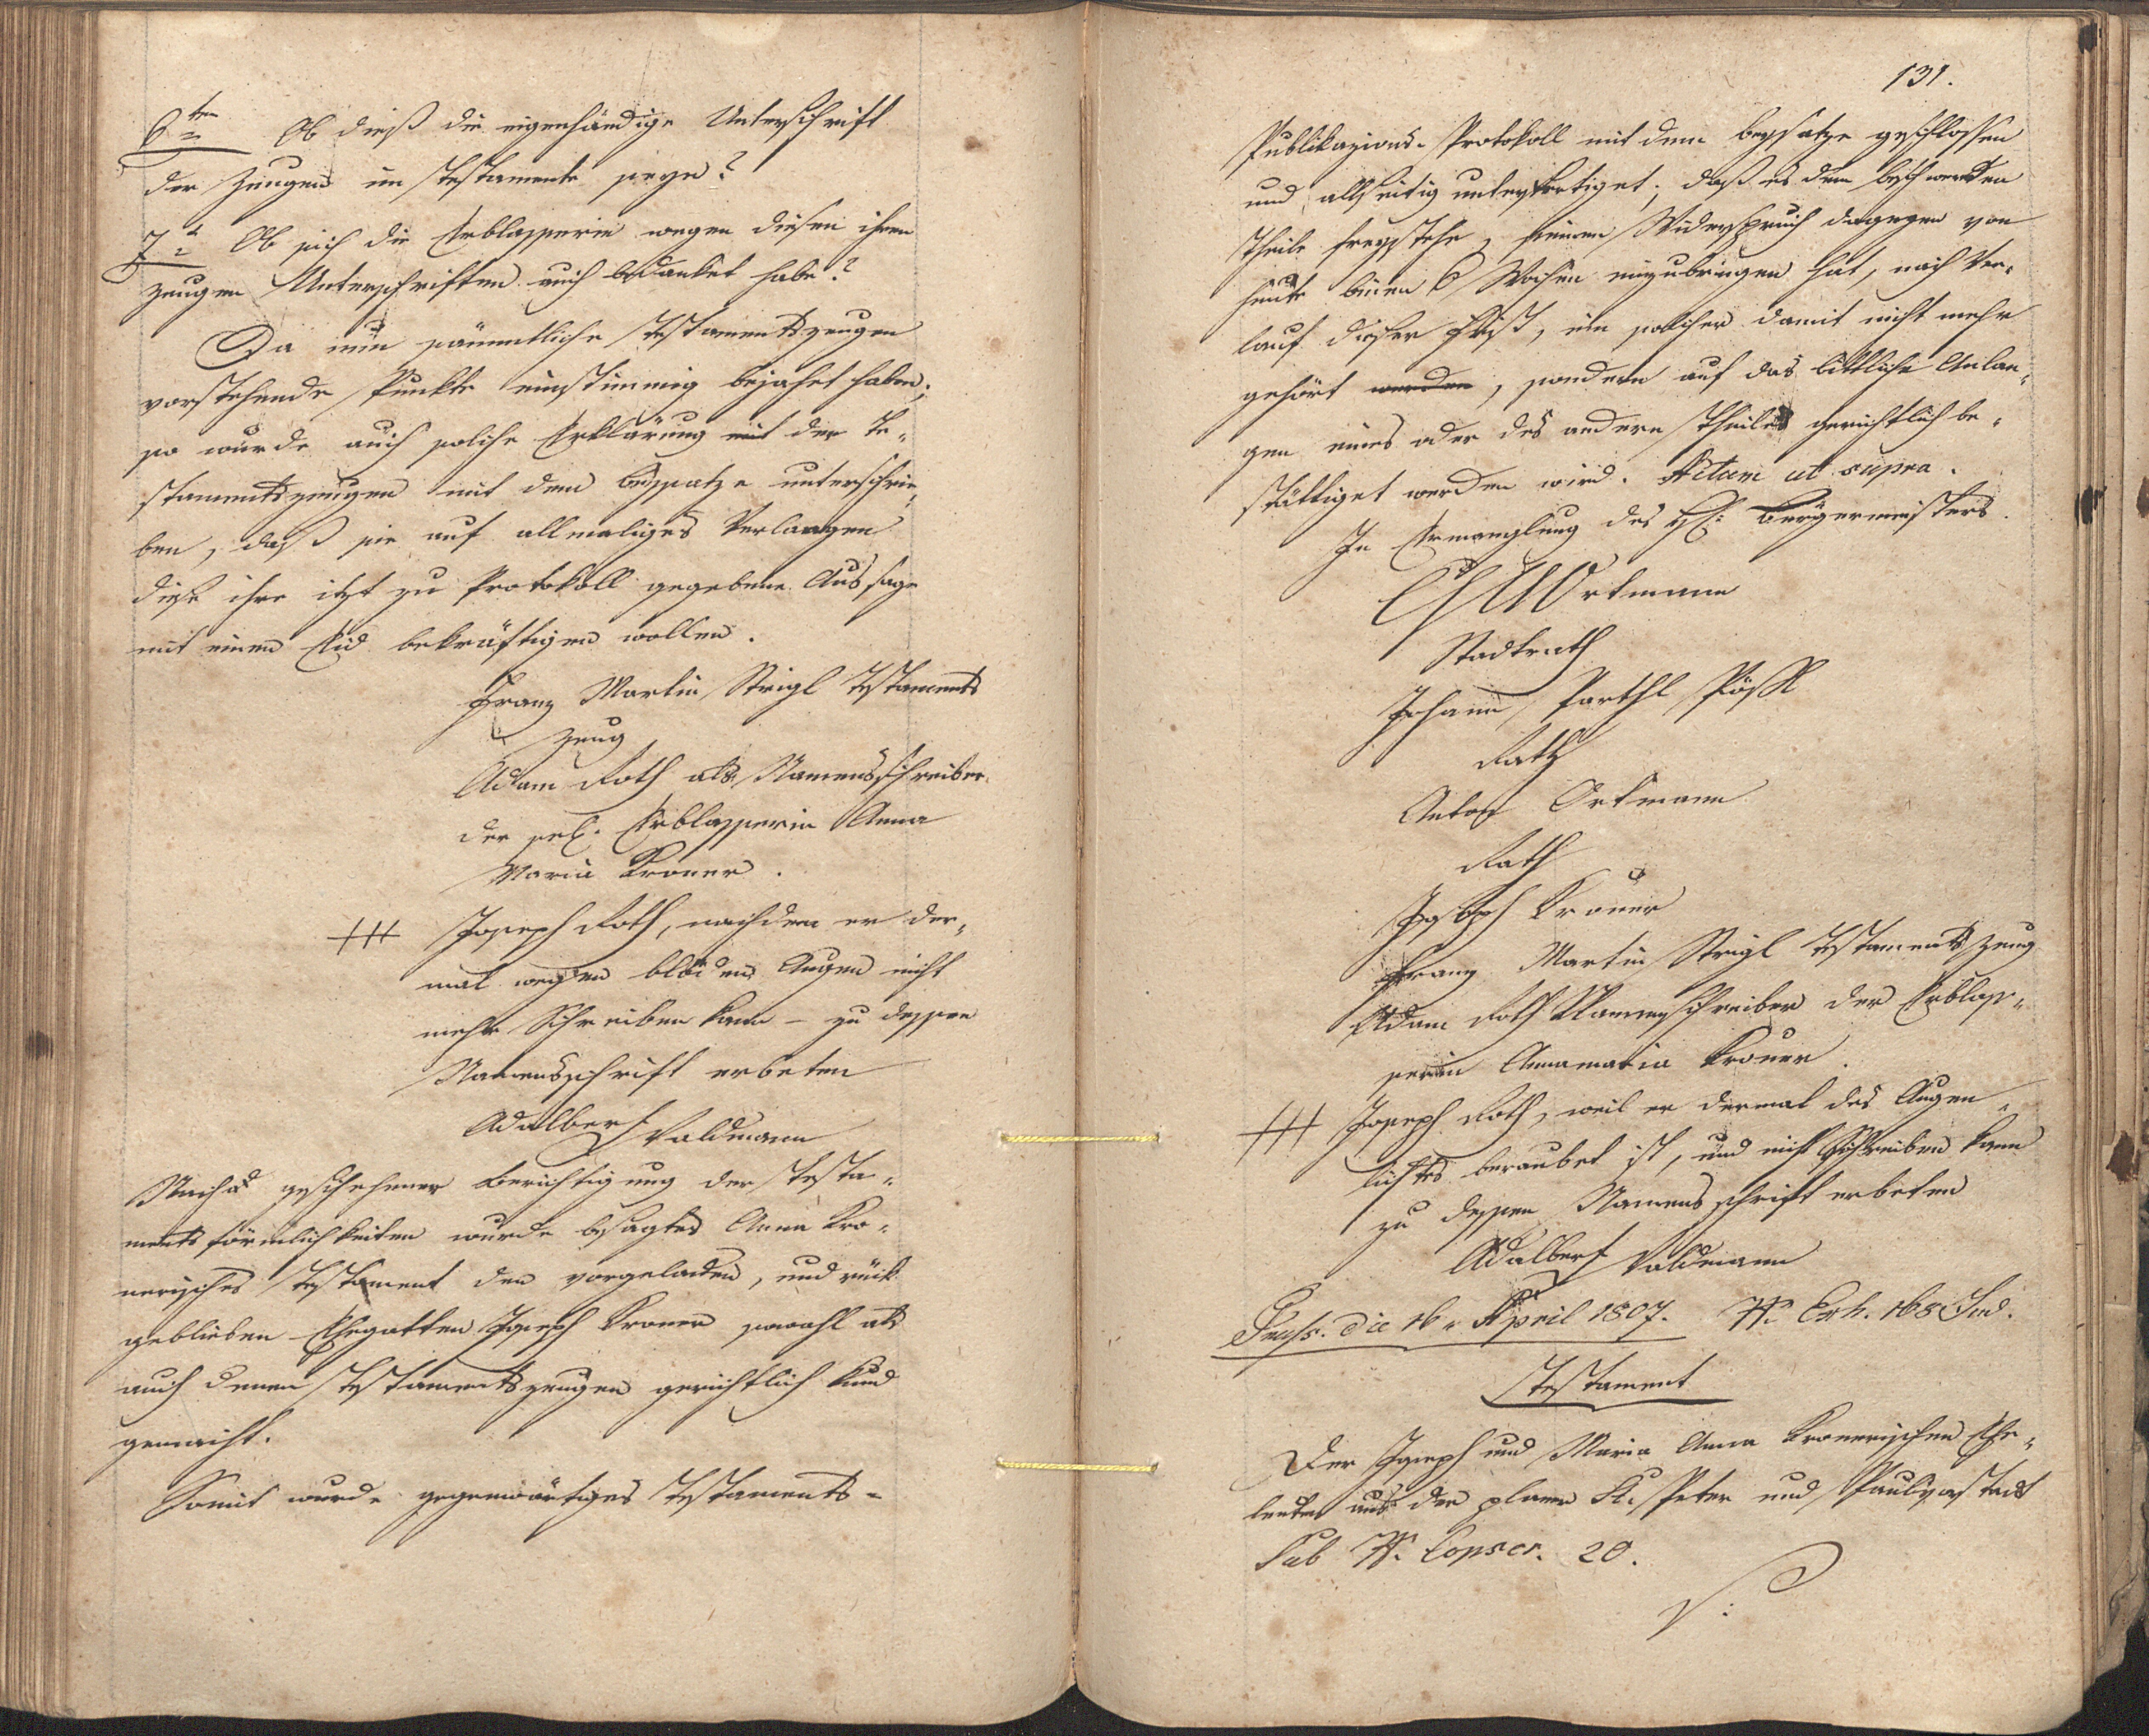 6ten Ob dieß die eigenhändige Unterschrift
der Zeugen im Testamente seye?
7t Ob sich die Erblasserin wegen diesen ihren
Zeugen Unterschriften auch bedanket habe?
Da nun sämmtliche Testamentszeugen
vorstehende Punkte einstimmig bejahet haben;
so wurde auch solche Erklärung mit der Te-
stamentszeugen mit dem Beysatze unterschrie-
ben, daß sie auf allmaliges Verlangen
diese ihre itzt zu Protokoll gegebene Aussage
mit einem Eid bekräftigen wollen.
Franz Martin Strigl Testaments
Zeug
Adam Roth als Namensschreiber
der sel. Erblasserin Anna
Maria Kroner.
+++ Joseph Roth, nachdem er der-
mal wegen blöden Augen nicht
mehr Schreiben kann – zu dessen
Namensschrift erbeten
Adalbert Waldmann
Nach geschehener Berichtigung der Testa-
mentsförmlichkeiten wurde besagtes Anna Kro-
nerisches Testament den vorgeladen, und rück
geblieben Ehegatten Joseph Kroner sowohl als
auch denen Testamentszeugen gerichtlich kund
gemacht.
Somit wurde gegenwärtiges Testaments-
131.
Publikazions-Protokoll mit dem Beysatze geschlossen
und allseitig unterfertiget; daß es dem beschwerden
Theile freystehe, seinen Widerspruch dagegen von
heute binnen 6 Wochen einzubringen hat, nach Ver-
lauf dieser Frist, um solcher damit nicht mehr
gehört werden, sondern auf das bittliche Anlan-
gen eines oder des andern Theiles gerichtlich be-
stättiget werden wird. Actum ut supra.
In Ermanglung des H: Bürgermeisters.
Ortmann
Stadtrath
Johann Parthl
Rath
Anton Ortmann
Rath
Joseph Kroner
Franz Martin Strigl Testaments Zeug
Adam Roth Namensschreiber der Erblas-
serin Annamaria Kroner.
+++ Joseph Roth, weil er dermal des Augen-
lichtes beraubet ist, und nicht Schreiben kann
zu dessen Namensschrift erbeten
Adalbert Waldmann
Praes. die 16. April 1807. N. Exh. 168 Jud.
Testament
Der Joseph und Maria Anna Kronerischen Ehe-
leuten aus der St. Peter und Paulvorstadt
Sub N. Conscr. 20.